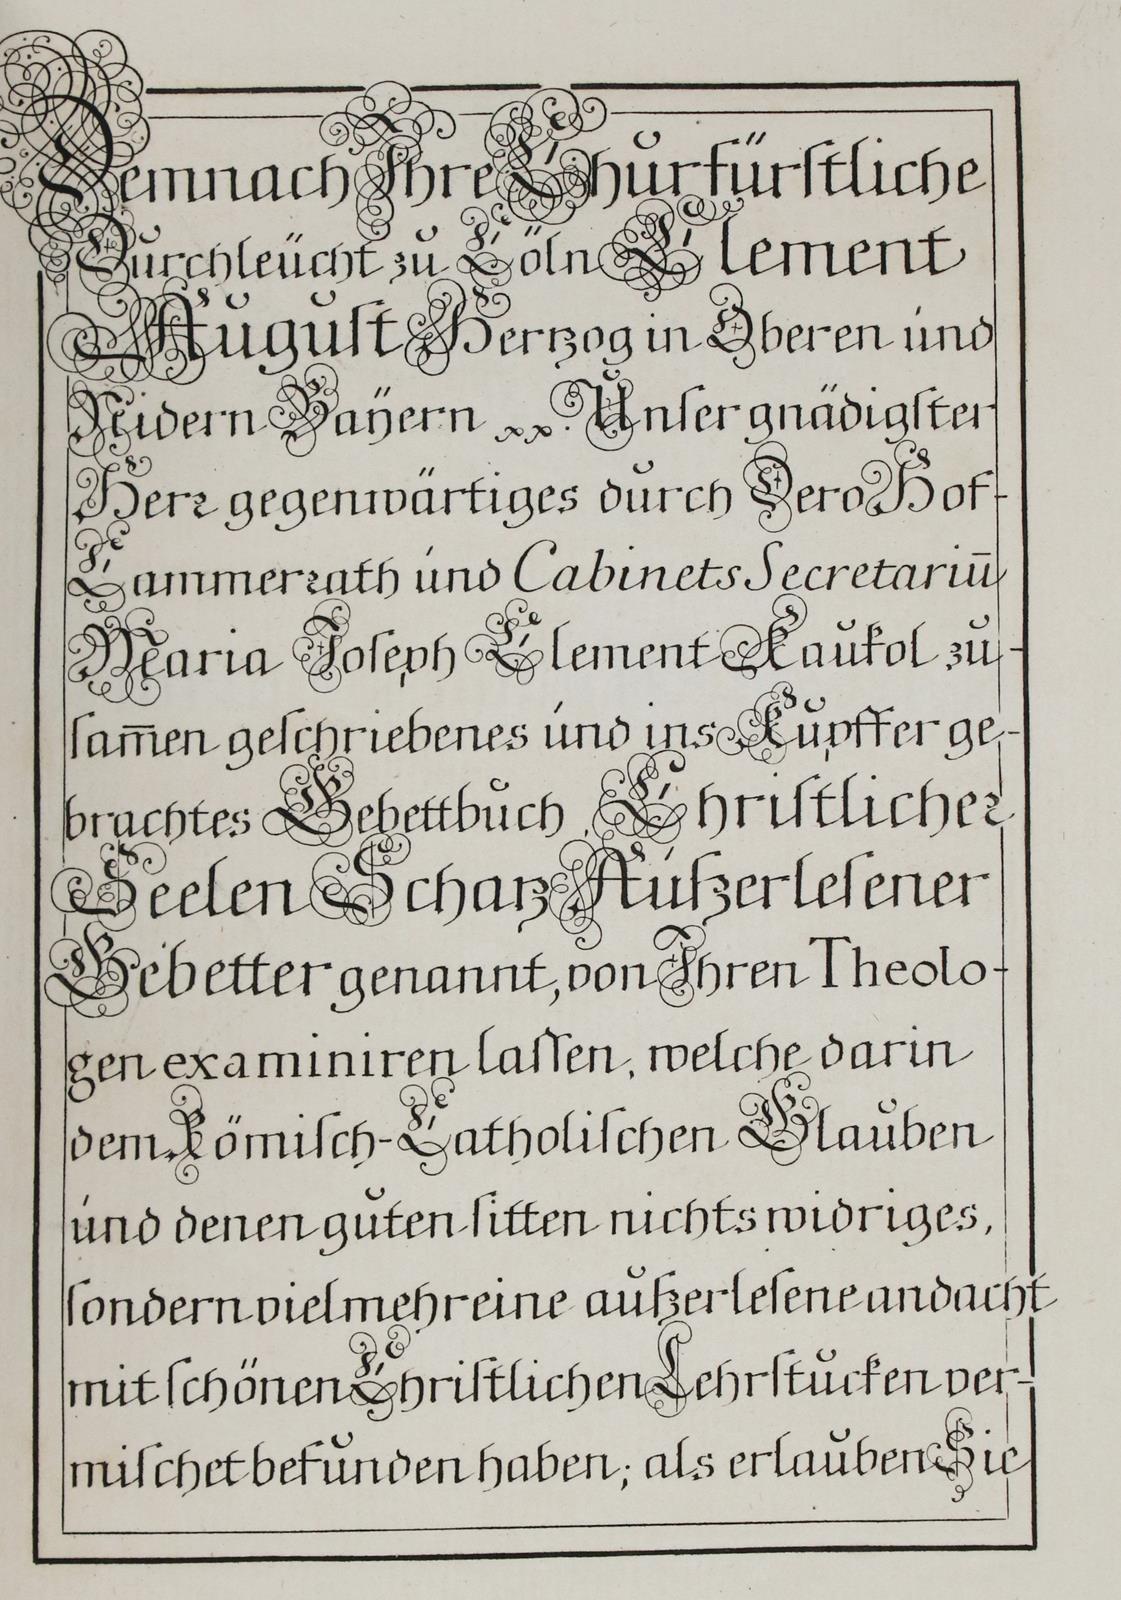 Demnach Ihre Chŭrfürſtliche
Dŭrchleücht zŭ Cöln Clement
Aŭgŭſt Hertzog in Oberen únd
Nidern Baÿern xx. Unſer gnädigſter
Herr gegenwärtiges dŭrch Dero Hof-
Cammerrath únd Cabinets Secretariū
Maria Joſeph Clement Kaŭkol zŭ-
ſam̅en geſchriebenes únd ins Kŭpffer ge-
brachtes Gebettbŭch, Chriſtlicher
Seelen Schatz Aúßerleſener
Gebetter genannt, von Ihren Theolo-
gen examiniren laſſen, welche darin
dem Römiſch-Catholiſchen Glaŭben
únd denen gŭten ſitten nichts widriges,
ſondern vielmehr eine aŭßerleſene andacht
mit ſchönen Chriſtlichen Lehrſtŭcken ver-
miſchet befŭnden haben; als erlaŭben Sie